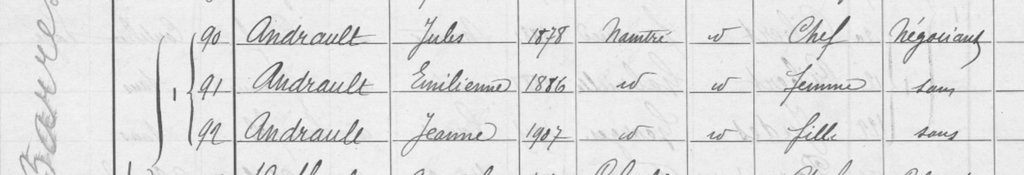 90 Andrault Jules 1878 Naintré id Chef Négociant
1 91 Andrault Emilienne 1886 id id femme sans
92 Andrault Jeanne 1907 id id fille sans